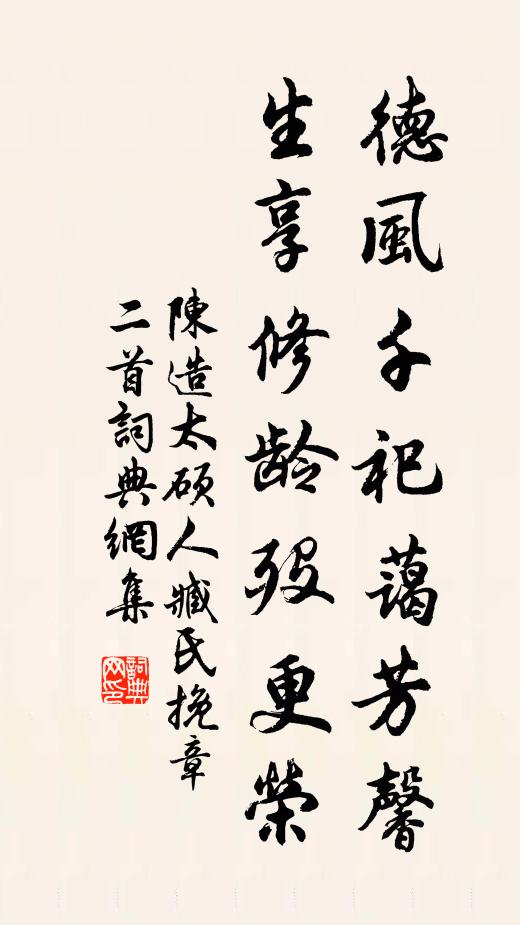 德風千祀藹芳馨
生享修龄歿更榮
陳造太硕人臧氏挽章
二首詞典網集
詞典网印